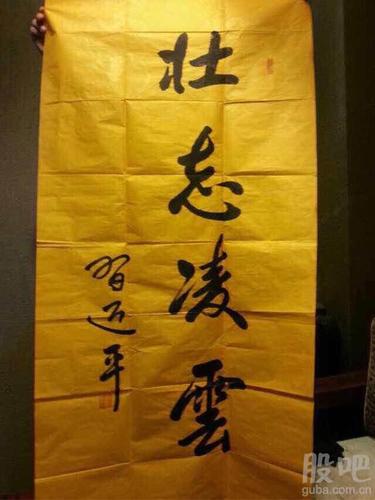 壮志凌雲
习近平
股吧
guba.com.cn